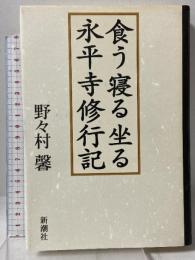 食う寝る坐る
永平寺修行記
野々村馨
新潮社